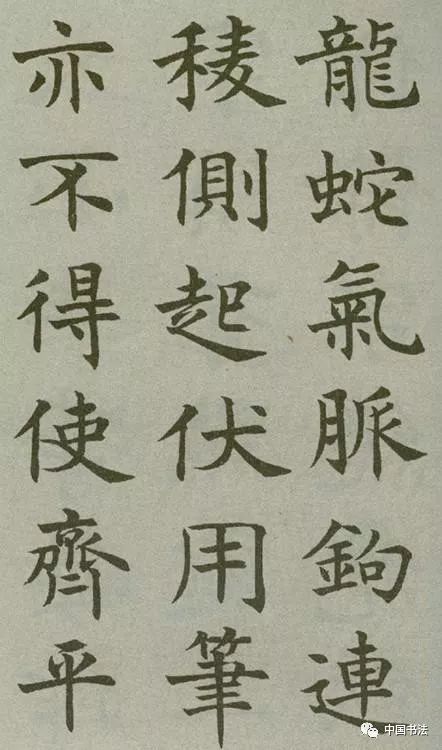 龍蛇氣脈鉤連
稜側起伏用筆
亦不得使齊平
中国书法